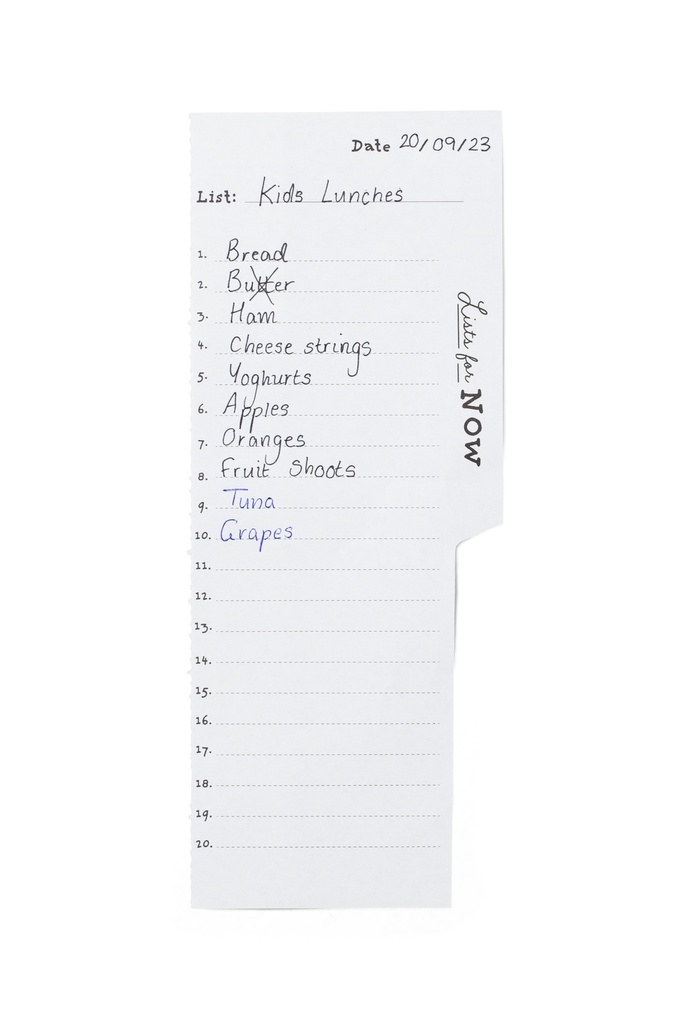 Date 20/09/23
List: Kids Lunches
1. Bread
2. Butter
3. Ham
4. Cheese strings
5. Yoghurts
6. Apples
7. Oranges
8. Fruit Shoots
9. Tuna
10. Grapes
11.
12.
13.
14.
15.
16.
17.
18.
19.
20.
Lists for NOW